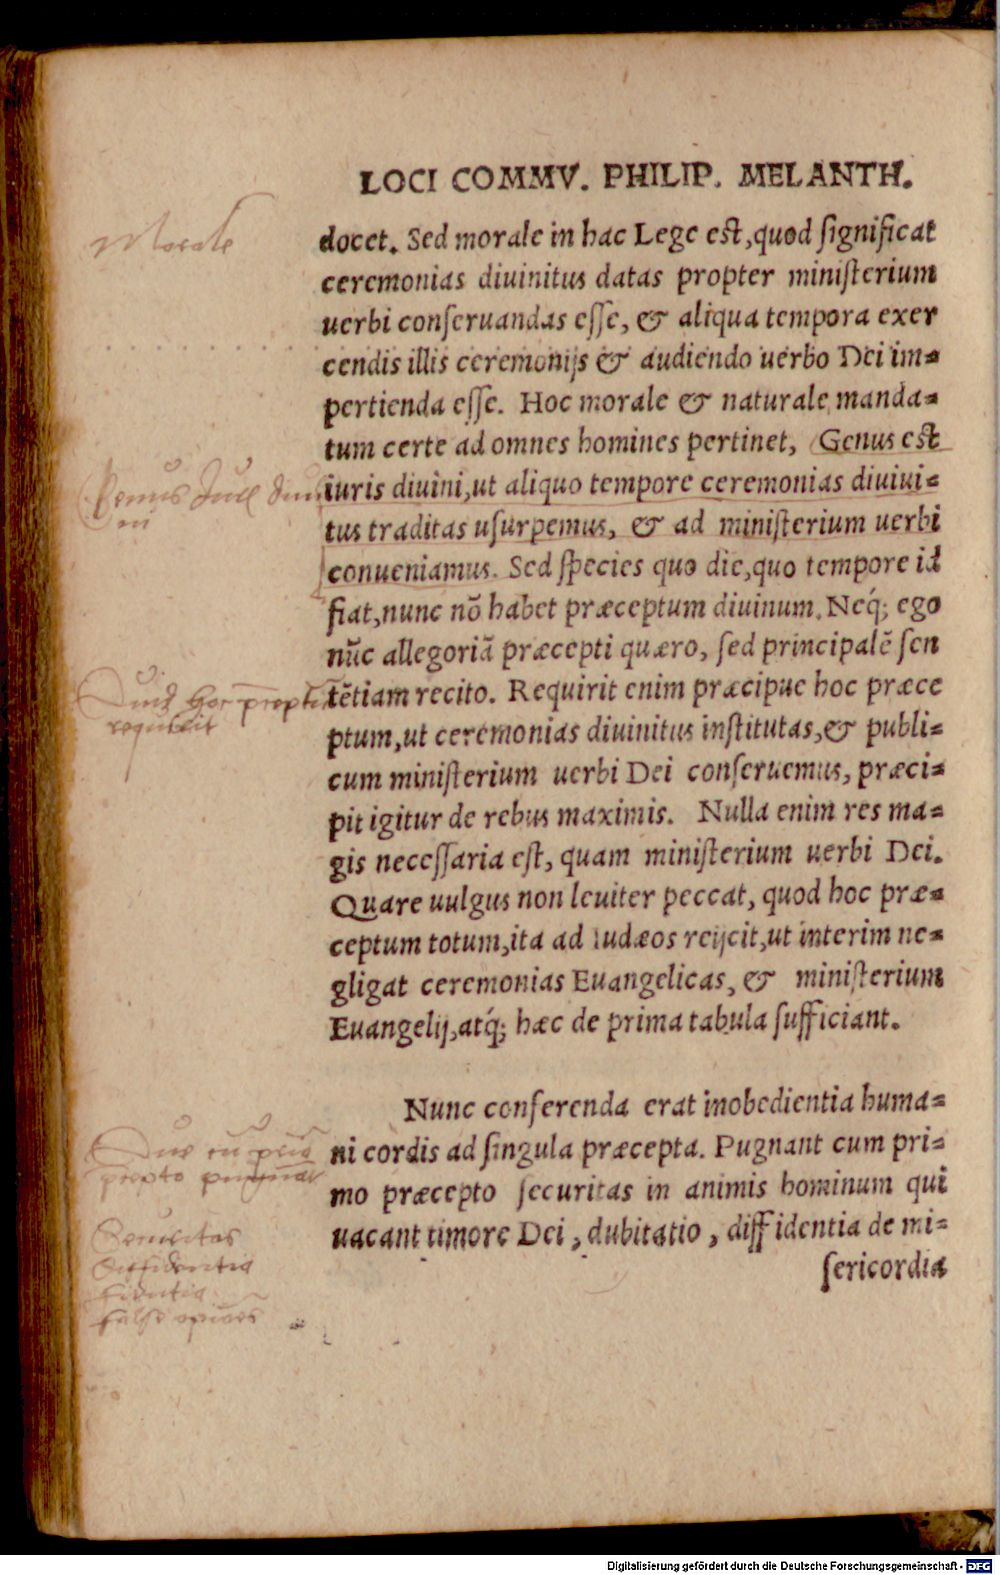 LOCI COMMV. PHILIP. MELANTH.
Morale
docet. Sed morale in hac Lege est, quod significat
ceremonias diuinitus datas propter ministerium
uerbi conseruandas esse, & aliqua tempora exer
cendis illis ceremonijs & audiendo uerbo Dei im=
pertienda esse. Hoc morale & naturale manda=
tum certe ad omnes homines pertinet, Genus est
Genus
iuris diuini, ut aliquo tempore ceremonias diuiui=
ni
tus traditas usurpemus, & ad ministerium uerbi
conueniamus. Sed species quo die, quo tempore id
fiat, nunc nō habet præceptum diuinum. Neq́; ego
nūc allegoriā præcepti quæro, sed principalē sen
Quid hoc
tētiam recito. Requirit enim præcipue hoc præce
requirit
ptum, ut ceremonias diuinitus institutas, & publi=
cum ministerium uerbi Dei conseruemus, præci=
pit igitur de rebus maximis. Nulla enim res ma=
gis necessaria est, quam ministerium uerbi Dei.
Quare uulgus non leuiter peccat, quod hoc præ=
ceptum totum, ita ad Iudæos reijcit, ut interim ne=
gligat ceremonias Euangelicas, & ministerium
Euangelij, atq́; hæc de prima tabula sufficiant.
Nunc conferenda erat inobedientia huma=
ni cordis ad singula præcepta. Pugnant cum pri=
mo præcepto securitas in animis hominum qui
uacant timore Dei, dubitatio, diffidentia de mi=
Securitas
diffidentia
fidutia
false
sericordia
Digitalisierung gefördert durch die Deutsche Forschungsgemeinschaft - DFG